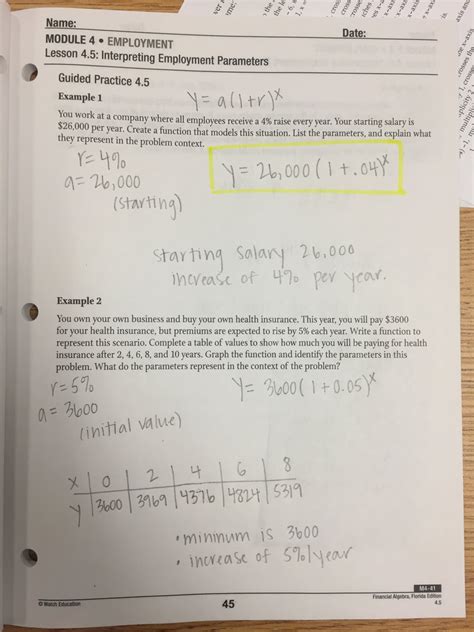 Name:
Date:
MODULE 4 • EMPLOYMENT
Lesson 4.5: Interpreting Employment Parameters
Guided Practice 4.5
Example 1
y = a(1+r)^x
You work at a company where all employees receive a 4% raise every year. Your starting salary is
$26,000 per year. Create a function that models this situation. List the parameters, and explain what
they represent in the problem context.
r = 4%
a = 26,000
(starting)
y = 26,000 (1 + .04)^x
starting salary 26,000
increase of 4% per year.
Example 2
You own your own business and buy your own health insurance. This year, you will pay $3600
for your health insurance, but premiums are expected to rise by 5% each year. Write a function to
represent this scenario. Complete a table of values to show how much you will be paying for health
insurance after 2, 4, 6, 8, and 10 years. Graph the function and identify the parameters in this
problem. What do the parameters represent in the context of the problem?
r = 5%
a = 3600
(initial value)
y = 3600 (1 + 0.05)^x
x | 0 | 2 | 4 | 6 | 8
y | 3600 | 3969 | 4376 | 4824 | 5319
• minimum is 3600
• increase of 5%/year
M4-41
© Walch Education
45
Financial Algebra, Florida Edition
4.5